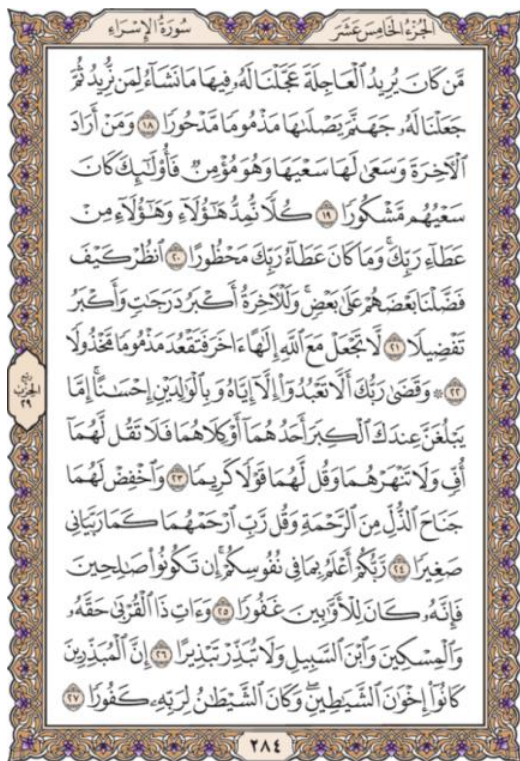 الجُزْءُ الخَامِسَ عَشَرَ
سُورَةُ الإِسْرَاءِ
مَّن كَانَ يُرِيدُ ٱلْعَاجِلَةَ عَجَّلْنَا لَهُۥ فِيهَا مَا نَشَآءُ لِمَن نُّرِيدُ ثُمَّ
جَعَلْنَا لَهُۥ جَهَنَّمَ يَصْلَىٰهَا مَذْمُومًا مَّدْحُورًا ١٨ وَمَنْ أَرَادَ
ٱلْأٓخِرَةَ وَسَعَىٰ لَهَا سَعْيَهَا وَهُوَ مُؤْمِنٌ فَأُو۟لَـٰٓئِكَ كَانَ
سَعْيُهُم مَّشْكُورًا ١٩ كُلًّا نُّمِدُّ هَـٰٓؤُلَآءِ وَهَـٰٓؤُلَآءِ مِنْ
عَطَآءِ رَبِّكَ ۚ وَمَا كَانَ عَطَآءُ رَبِّكَ مَحْظُورًا ٢٠ ٱنظُرْ كَيْفَ
فَضَّلْنَا بَعْضَهُمْ عَلَىٰ بَعْضٍ ۚ وَلَلْأٓخِرَةُ أَكْبَرُ دَرَجَـٰتٍ وَأَكْبَرُ
تَفْضِيلًا ٢١ لَّا تَجْعَلْ مَعَ ٱللَّهِ إِلَـٰهًا ءَاخَرَ فَتَقْعُدَ مَذْمُومًا مَّخْذُولًا
٢٢ ۞ وَقَضَىٰ رَبُّكَ أَلَّا تَعْبُدُوٓا۟ إِلَّآ إِيَّاهُ وَبِٱلْوَٰلِدَيْنِ إِحْسَـٰنًا ۚ إِمَّا
يَبْلُغَنَّ عِندَكَ ٱلْكِبَرَ أَحَدُهُمَآ أَوْ كِلَاهُمَا فَلَا تَقُل لَّهُمَآ
أُفٍّ وَلَا تَنْهَرْهُمَا وَقُل لَّهُمَا قَوْلًا كَرِيمًا ٢٣ وَٱخْفِضْ لَهُمَا
جَنَاحَ ٱلذُّلِّ مِنَ ٱلرَّحْمَةِ وَقُل رَّبِّ ٱرْحَمْهُمَا كَمَا رَبَّيَانِى
صَغِيرًا ٢٤ رَّبُّكُمْ أَعْلَمُ بِمَا فِى نُفُوسِكُمْ ۚ إِن تَكُونُوا۟ صَـٰلِحِينَ
فَإِنَّهُۥ كَانَ لِلْأَوَّٰبِينَ غَفُورًا ٢٥ وَءَاتِ ذَا ٱلْقُرْبَىٰ حَقَّهُۥ
وَٱلْمِسْكِينَ وَٱبْنَ ٱلسَّبِيلِ وَلَا تُبَذِّرْ تَبْذِيرًا ٢٦ إِنَّ ٱلْمُبَذِّرِينَ
كَانُوٓا۟ إِخْوَٰنَ ٱلشَّيَـٰطِينِ ۖ وَكَانَ ٱلشَّيْطَـٰنُ لِرَبِّهِۦ كَفُورًا ٢٧
ربع
الحزب
٢٩
٢٨٤